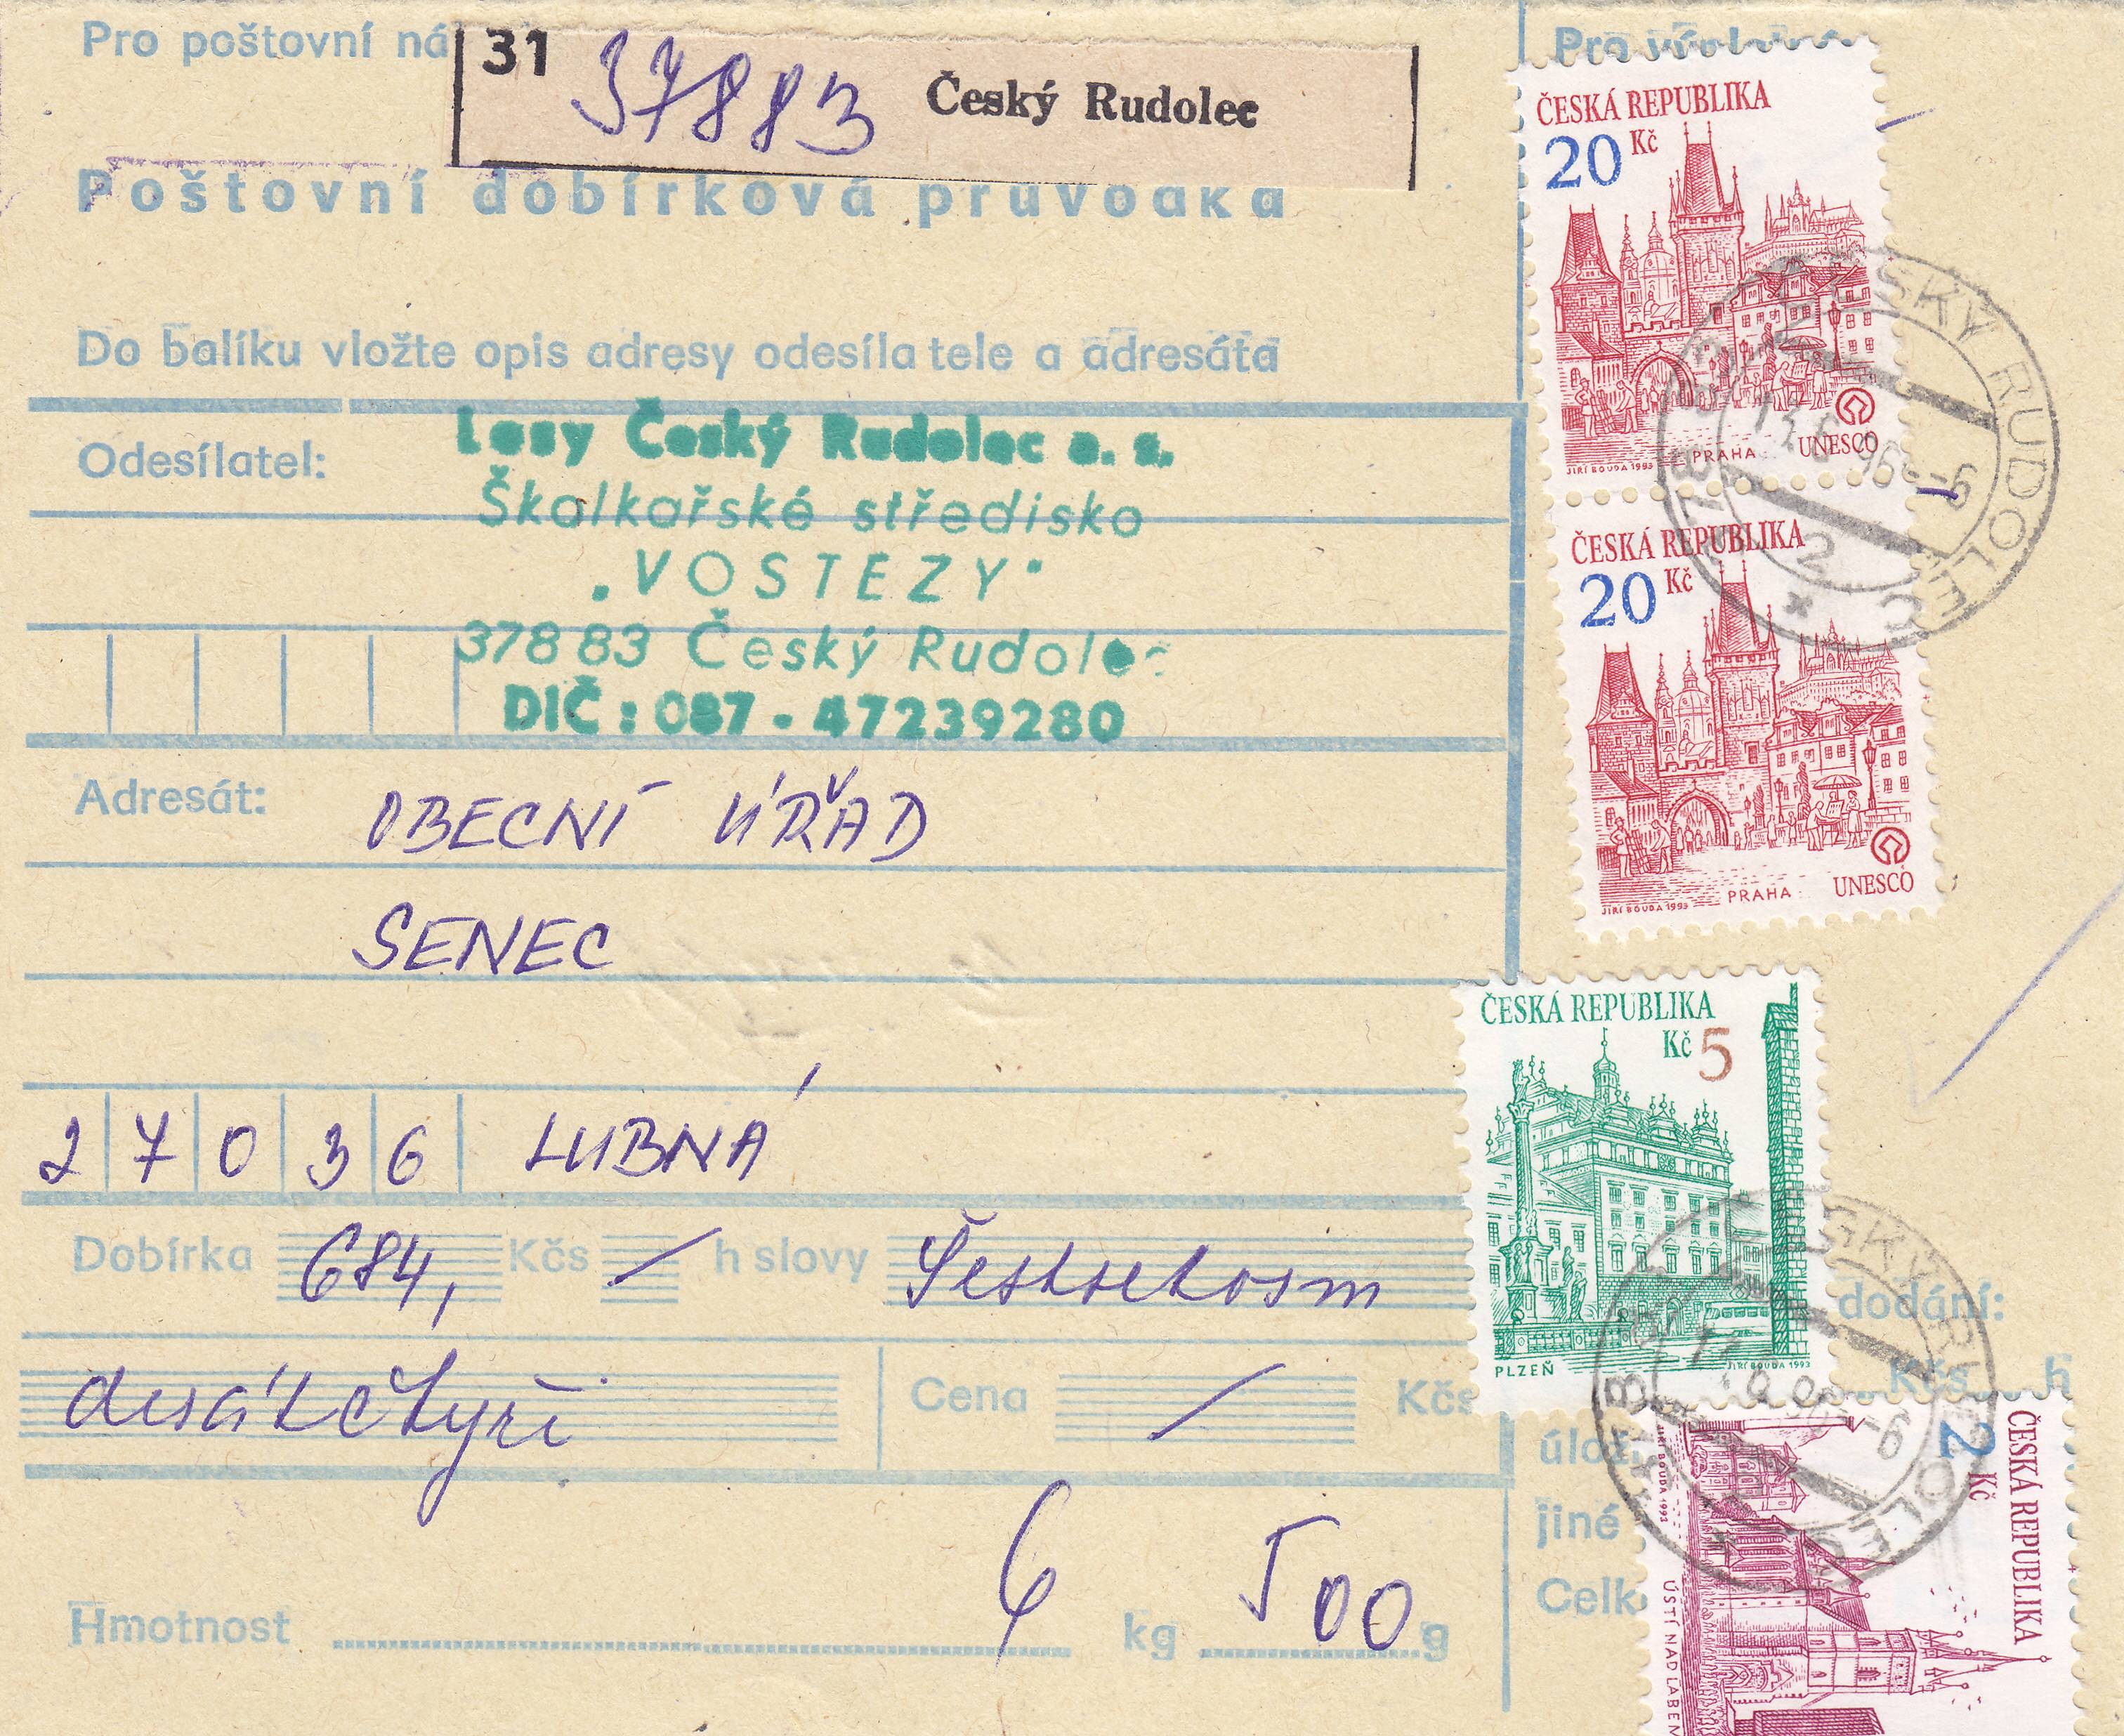 Pro poštovní ná
31 37883 Český Rudolec
Poštovní dobírková průvodka
Do balíku vložte opis adresy odesílatele a adresáta
Odesílatel:
Lesy Český Rudolec a. s.
Školkařské středisko
„VOSTEZY"
378 83 Český Rudolec
DIČ: 087 - 47239280
Adresát: OBECNÍ ÚŘAD
SENEC
27036 LUBNÁ
Dobírka 684, Kčs — h slovy Šestsetosm
desátčtyři Cena — Kčs
Hmotnost 6 kg 500 g
Pro
ČESKÁ REPUBLIKA
20 Kč
PRAHA UNESCO
JIŘÍ BOUDA 1993
ČESKÁ REPUBLIKA
20 Kč
PRAHA UNESCO
JIŘÍ BOUDA 1993
378 83 ČESKÝ RUDOLEC 2
ČESKÁ REPUBLIKA
Kč 5
PLZEŇ JIŘÍ BOUDA 1993
dodání:
Kčs h
úlož
jiné
Celk
ČESKÁ REPUBLIKA
2 Kč
JIŘÍ BOUDA 1993
ÚSTÍ NAD LABEM